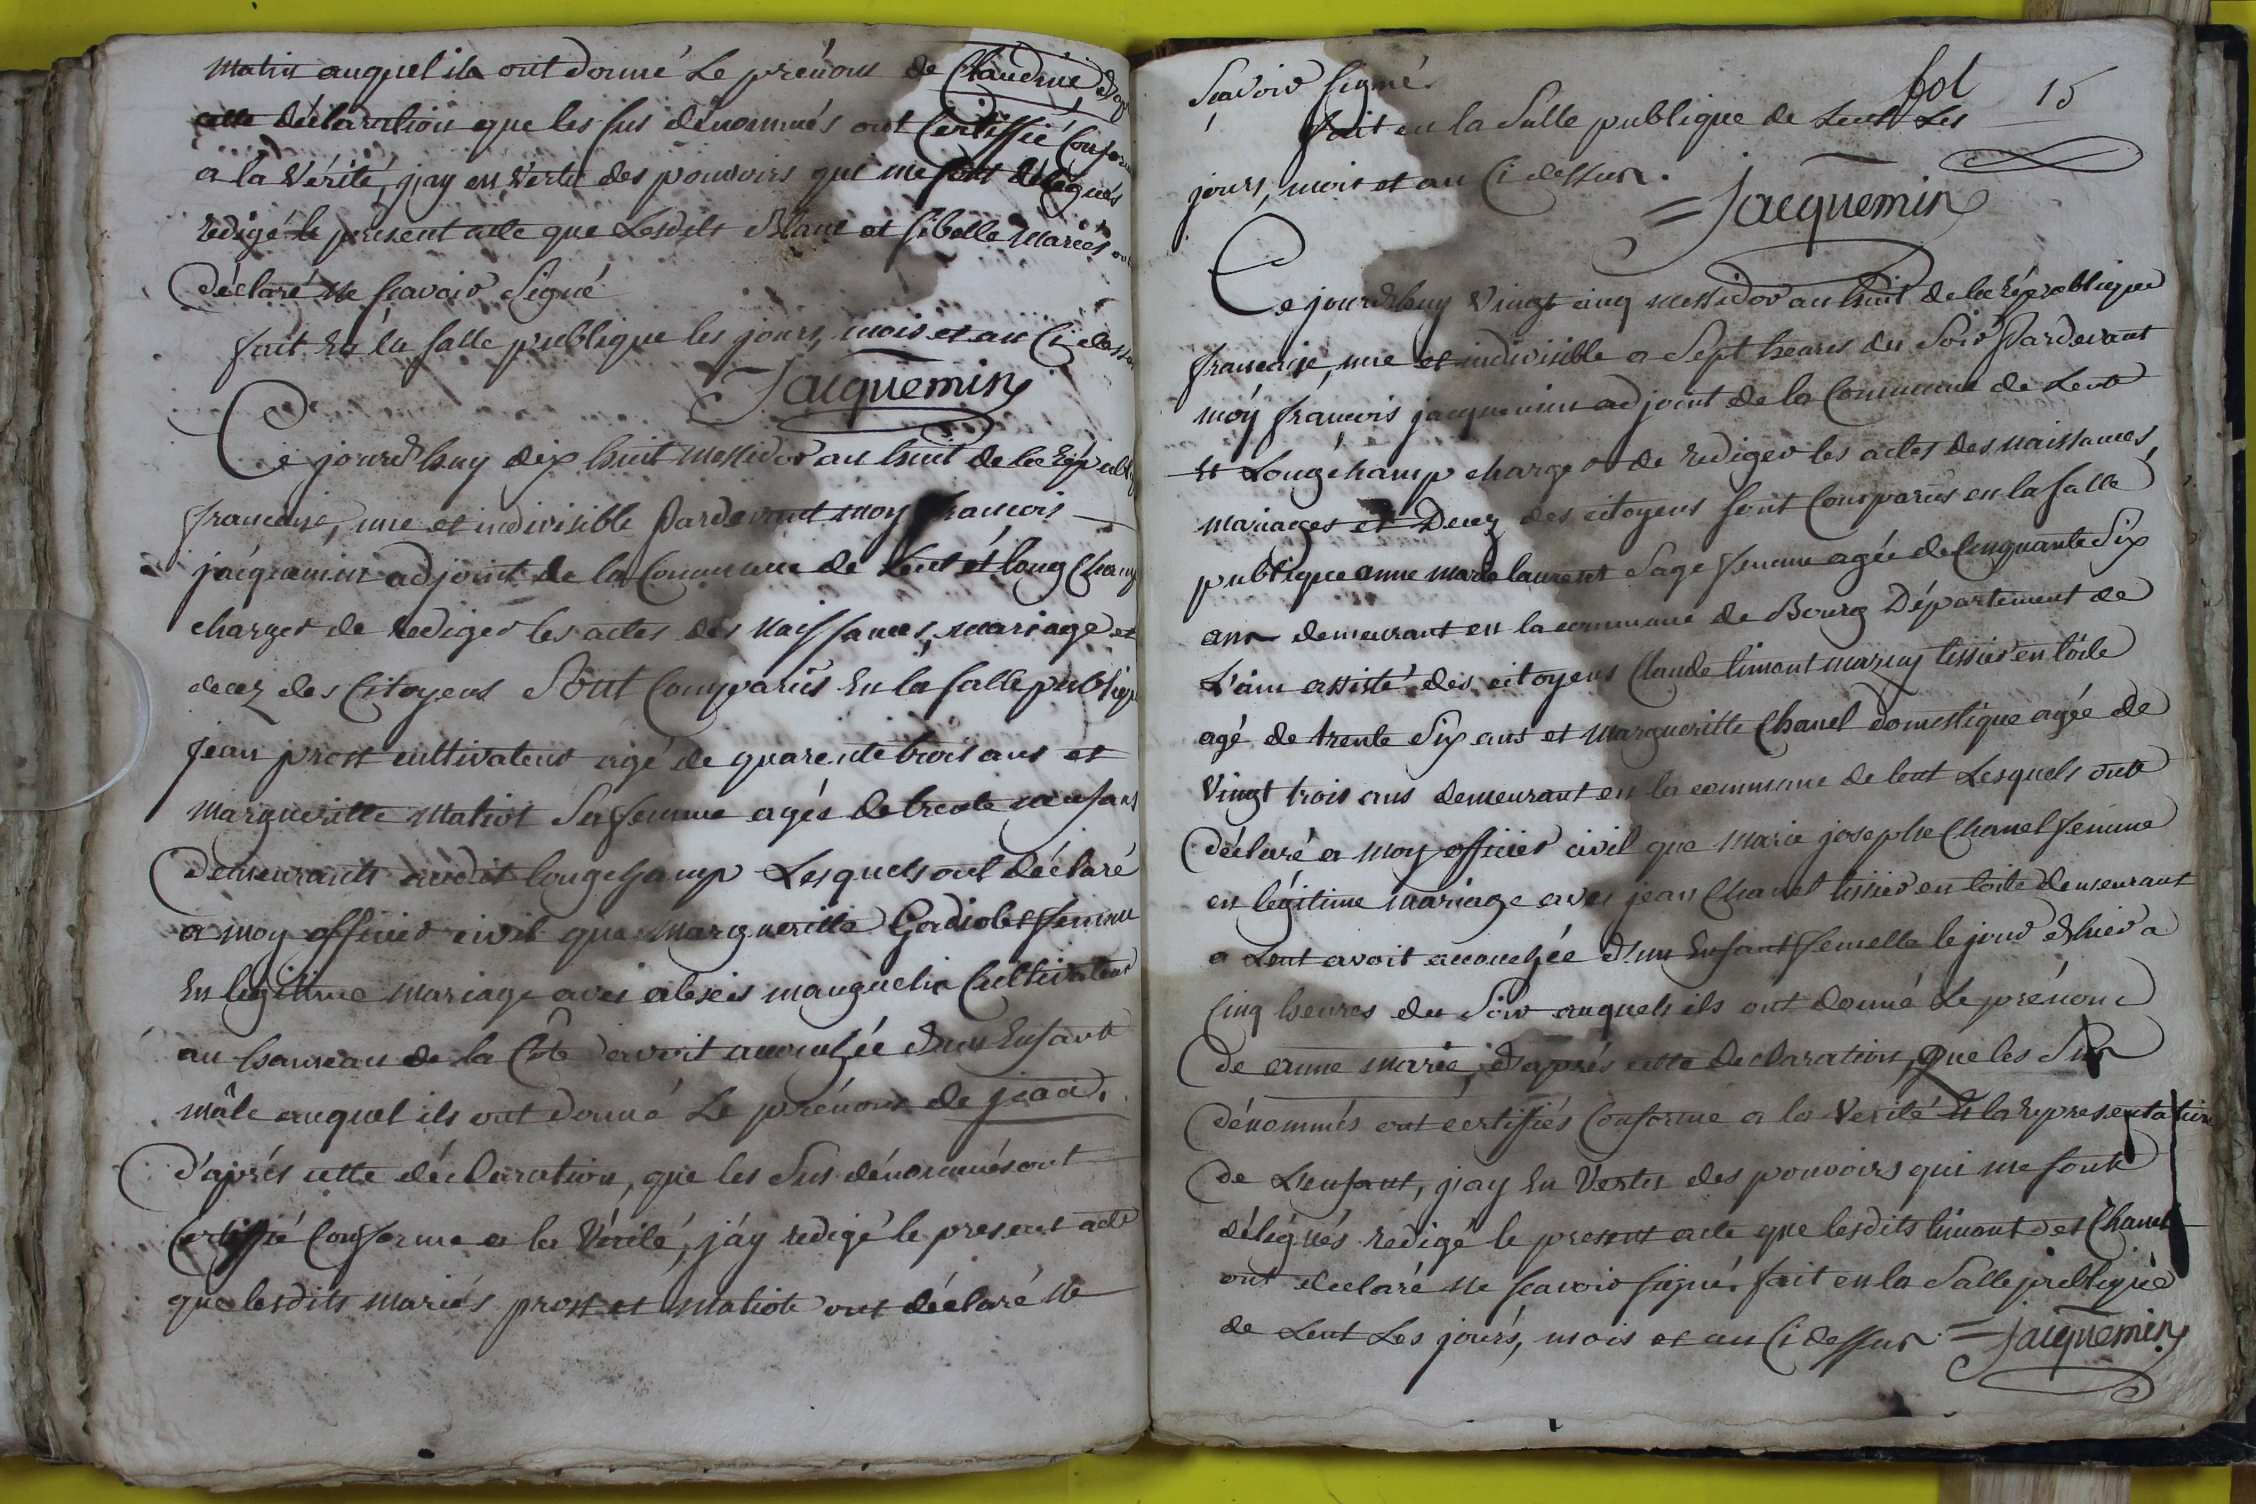 Matin auquel ils ont donné Le prénom de Claudine, d'ap
cette déclaration que les sus dénommés ont Certiffié Confor
a la Vérité, j'ay en vertu des pouvoirs qui me sont délégués
redigé le present acte que Lesdits Blanc et Sibelle Mariés on
Déclaré Ne scavoir Signé
fait En la salle publique les jours, mois et an Ci dessu
Jacquemin
Ce jourd'huy dix huit Messidor an huit de la Répub
francaise, une et indivisible Pardevant moy francois
jacquemin adjoint de la Commune de Lent et Long Champ
charger de rediger les actes des Naissances, mariage et
decez des Citoyens Sont Comparus En la salle publiq
Jean prost cultivateur agé de quarente trois ans et
Margueritte Matiot Sa femme agés de trente ans
Demeurants audit longchamp Lesquels ont déclaré
a moy officier civil que Margueritte Gadiolet femme
En legitime Mariage avec alexis manguelin Cultivateur
au hameau de la Côte avoit accouchée d'un Enfant
mâle auquel ils ont donné Le prénom de jean.
D'aprés cette déclaration, que les Sus dénommés ont
Certiffié Conforme a la Vérité, j'ay redigé le present acte
que lesdits mariés prost et Matiot ont déclaré Ne
Scavoir Signé.
fol 15
fait en la Salle publique de Lent Les
jours, mois et an Ci dessus.
= Jacquemin
Ce jourd'huy Vingt cinq Messidor an huit de la République
francaise, une et indivisible a Sept heures du Soir Pardevant
moy francois jacquemin adjoint de la Commune de Lent
Et Longchamp charger de rediger les actes des naissances,
mariages et Decez des citoyens sont Comparus en la salle
publique anne marie laurent Sage femme agée de Cinquante Six
ans demeurant en la commune de Bourg Département de
L'ain assisté des citoyens Claude limont maruy tissier en toile
agé de trente Six ans et Margueritte Chanel domestique agée de
Vingt trois ans demeurant en la commune de lent Lesquels ont
Déclaré a moy officier civil que Marie josephe Chanel femme
en légitime mariage avec jean Chanel tissier en toile demeurant
a Lent avoit accouchée d'un Enfant femelle le jour d'hier a
Cinq heures du Soir auquels ils ont donné Le prénom
De anne marie, d'aprés cette declaration, que les Sus
Dénommés ont certiffiés Conforme a la Verité Et la representation
De L'enfant, j'ay En Vertu des pouvoirs qui me sont
délégués redigé le present acte que lesdits limont et Chanel
ont declaré Ne scavoir signé. fait en la Salle publique
de Lent Les jours, mois et an Ci dessus = Jacquemin